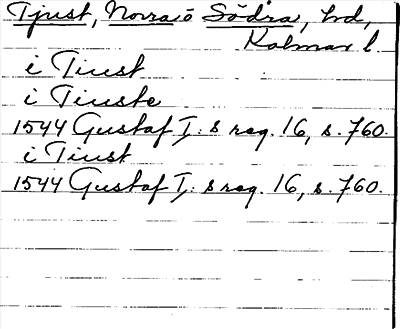 Tjust, Norra o Södra, hd,
Kalmar l
i Tiust
i Tiuste
1544 Gustaf I:s reg. 16, s. 760.
i Tiust
1544 Gustaf I:s reg. 16, s. 760.